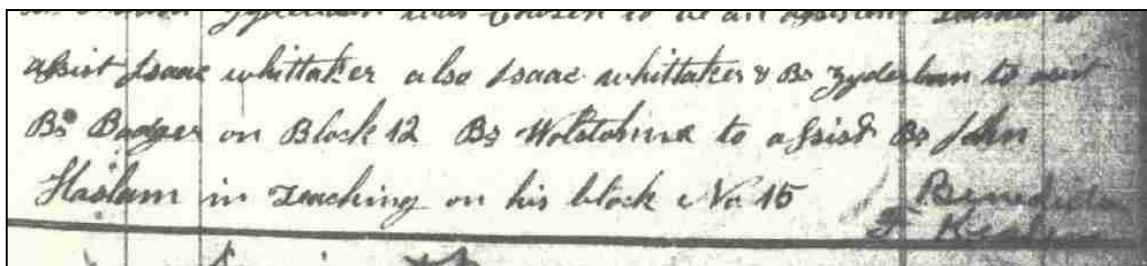 was Chosen to be an assistent
assist Isaac whittaker also Isaac whittaker & Br Zyderlaan to asist
Br Badger on Block 12 Br Wolstohnme to assist Br John
Haslam in Teaching on his block No 15 Benediction
F K